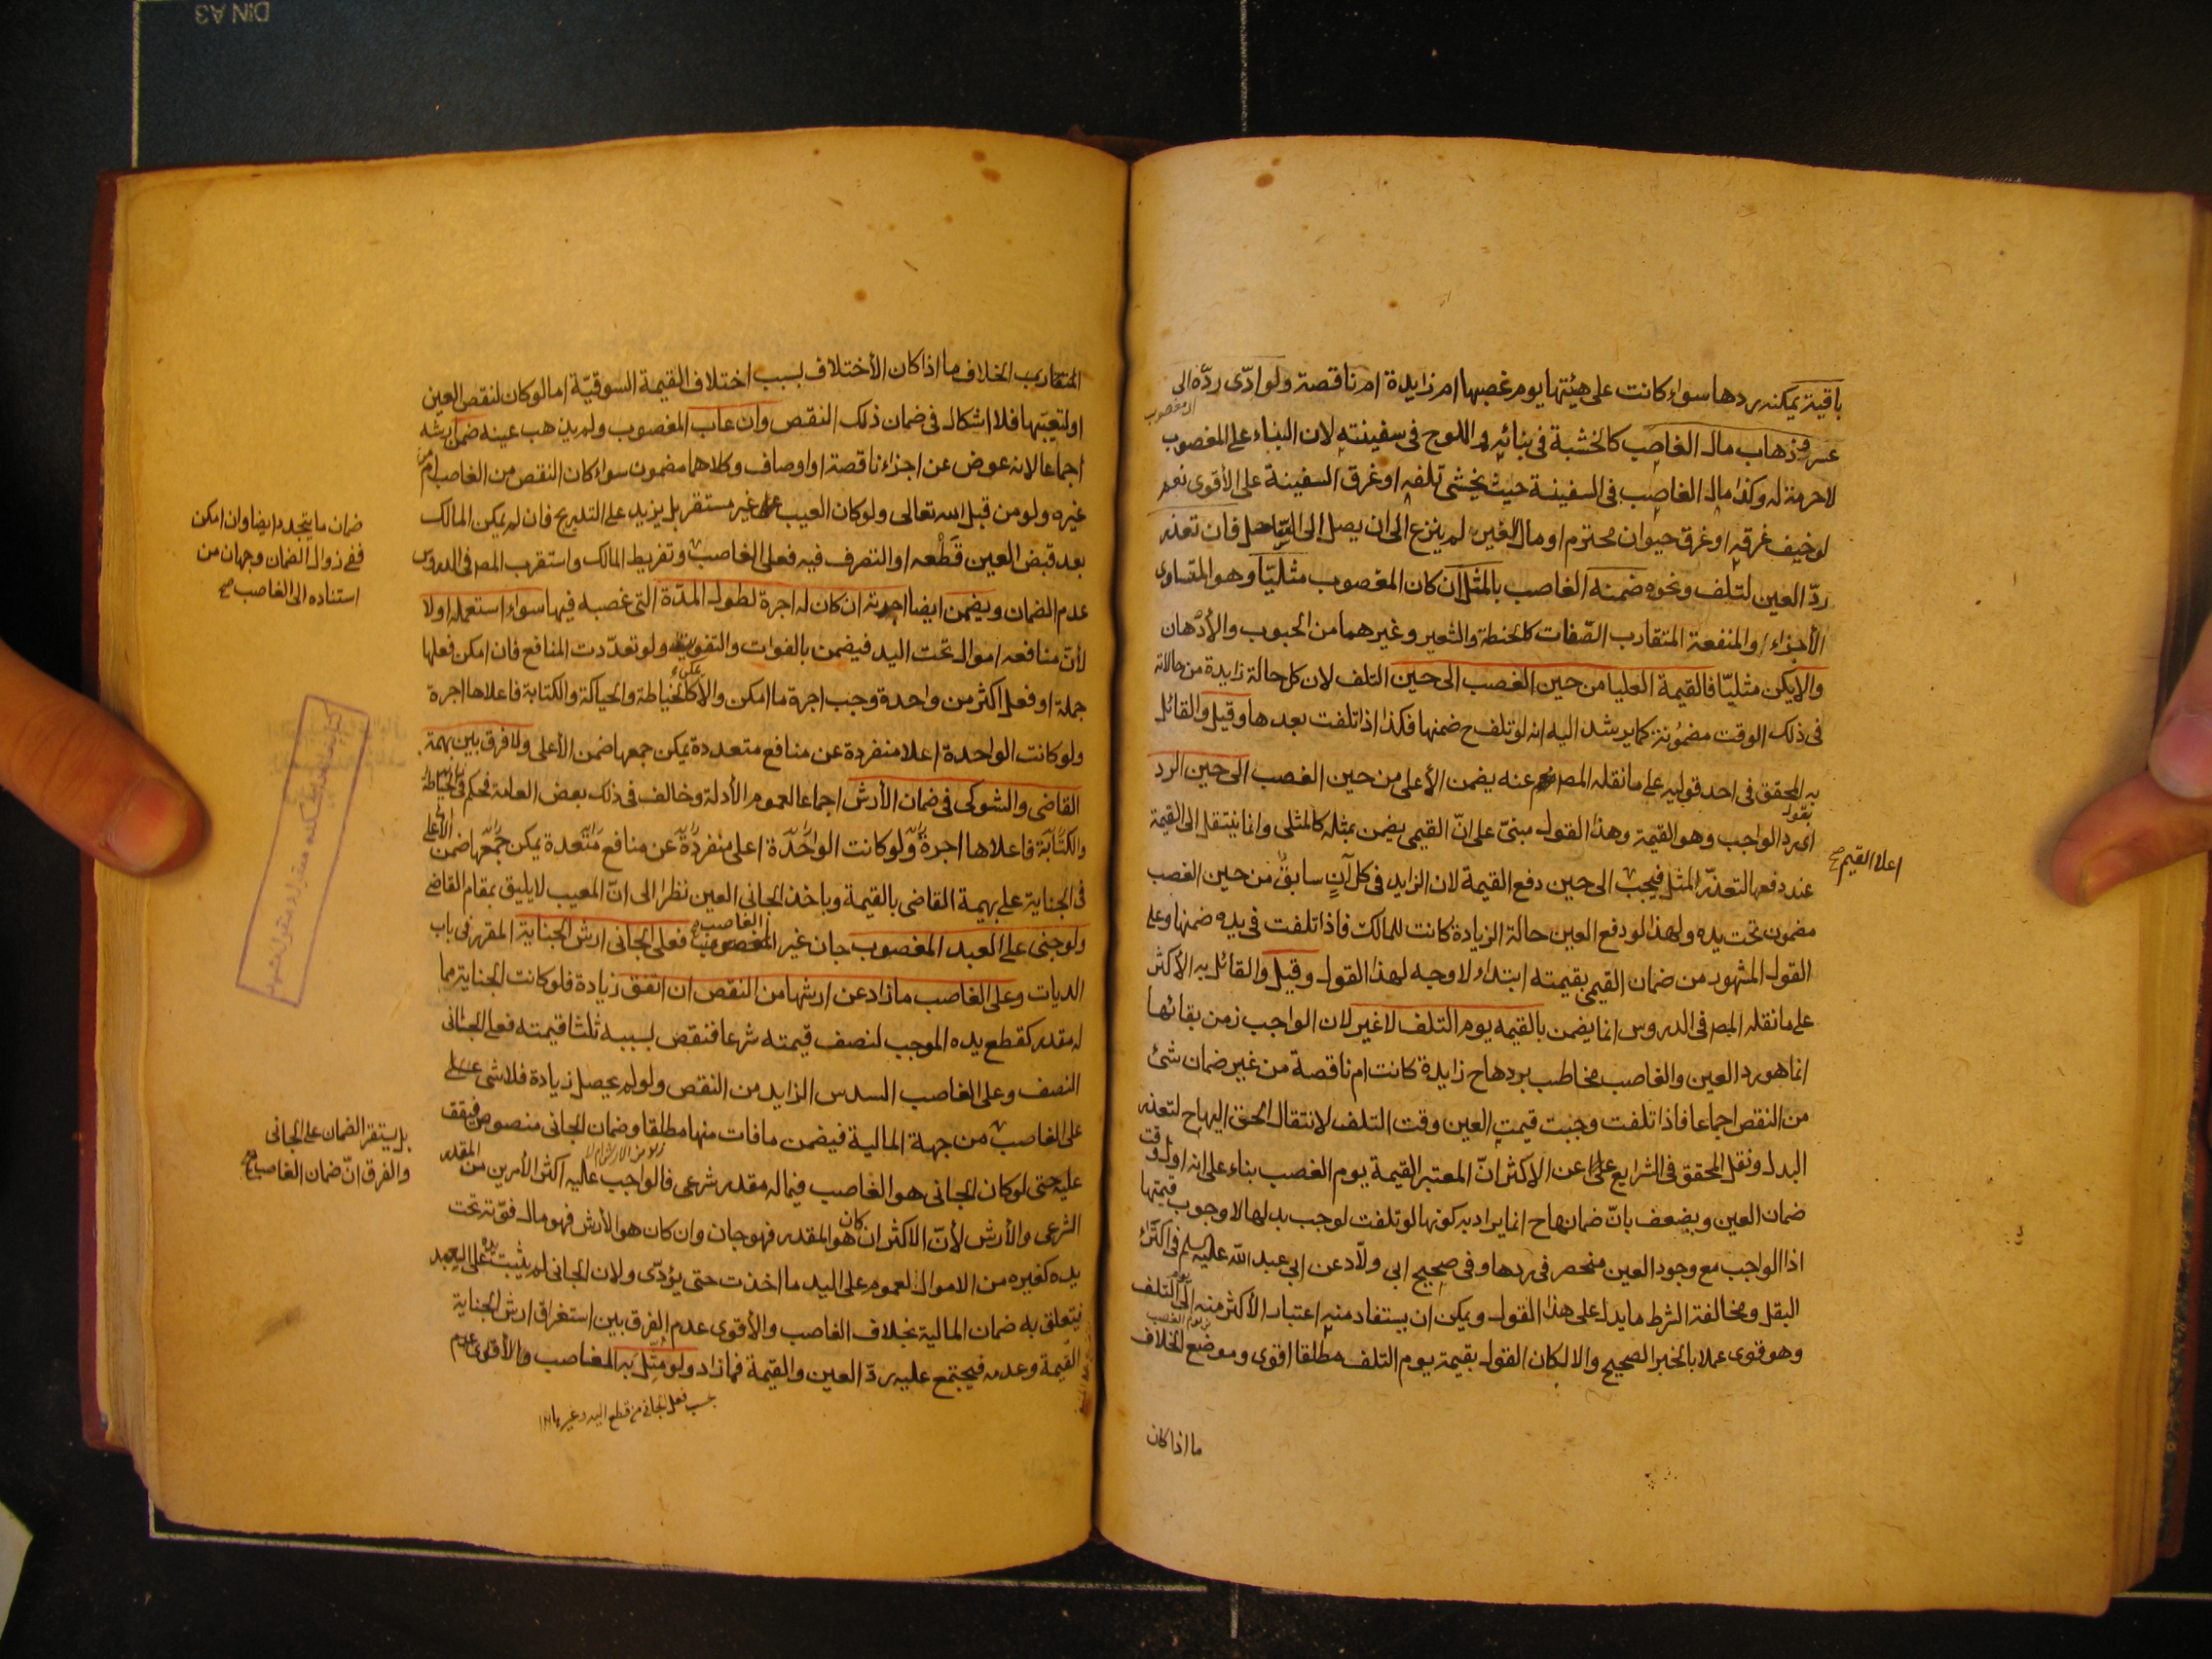 باقية يمكنه ردها سواء كانت على هيئتها يوم غصبها ام زايدة ام ناقصة ولو ادّى ردّه الى
عسر وذهاب مال الغاصب كالخشبة في بنائه واللوح في سفينته لان البناء على المغصوب
لا حرمة له وكذا مال الغاصب في السفينة حيث يخشى تلفه او غرق السفينة على الأقوى نعم
لو خيف غرقه او غرق حيوان محترم او مال لغيره لم ينزع الى ان يصل الى الساحل فان تعذر
ردّ العين لتلف ونحوه ضمنه الغاصب بالمثل ان كان المغصوب مثليّا وهو المتساوى
الأجزاء والمنفعة المتقارب الصّفات كالحنطة والشعير وغيرهما من الحبوب والأدهان
والا يكن مثليّا فالقيمة العليا من حين الغصب الى حين التلف لان كل حالة زايدة من حالاته
في ذلك الوقت مضمونة كما يرشد اليه انه لو تلف ح ضمنها فكذا اذا تلفت بعدها وقيل والقائل
به المحقق في احد قوليه على ما نقله المصر عنه يضمن الأعلى من حين الغصب الى حين الرد
اى رد الواجب وهو القيمة وهذا القول مبنىّ على انّ القيمى يضمن بمثله كالمثلى وانما ينتقل الى القيمة
اعلا القيم صح
عند دفعها لتعذّر المثل فيجب الى حين دفع القيمة لان الزايد في كل آنٍ سابق من حين الغصب
مضمون تحت يده ولهذا لو دفع العين حالة الزيادة كانت للمالك فاذا تلفت في يده ضمنها وعلى
القول المشهور من ضمان القيمى بقيمته ابتداء لا وجه لهذا القول وقيل والقائل به الأكثر
على ما نقله المصر في الدروس انما يضمن بالقيمة يوم التلف لا غير لان الواجب زمن بقائها
انما هو رد العين والغاصب مخاطب بردها ح زايدة كانت ام ناقصة من غير ضمان شئ
من النقص اجماعا فاذا تلفت وجبت قيمة العين وقت التلف لانتقال الحق اليها ح لتعذر
البدل ونقل المحقق في الشرايع عن الاكثر انّ المعتبر القيمة يوم الغصب بناء على انه اول وقت
ضمان العين ويضعف بانّ ضمانها ح انما يراد به كونها لو تلفت لوجب بدلها لا وجوب قيمتها
اذ الواجب مع وجود العين منحصر في ردها وفي صحيح ابى ولّاد عن ابى عبد اللّه عليه السلم في اكتراء
البغل ومخالفة الشرط ما يدل على هذا القول ويمكن ان يستفاد منه اعتبار الأكثر منه الى يوم التلف
وهو قوى عملا بالخبر الصحيح والا لكان القول بقيمة يوم التلف مطلقا اقوى وموضع الخلاف
ما اذا كان
المتقارب الخلاف ما اذا كان الأختلاف بسبب اختلاف القيمة السوقيّة اما لو كان لنقص العين
او لتعيّبها فلا اشكال في ضمان ذلك النقص وان عاب المغصوب ولم يذهب عينه ضمن ارشه
اجماعا لانه عوض عن اجزاء ناقصة او اوصاف وكلاهما مضمون سواء كان النقص من الغاصب ام من
غيره ولو من قبل اللّه تعالى ولو كان العيب غير مستقر بل يزيد على التدريج فان لم يكن المالك
بعد قبض العين قَطْعه او التصرف فيه فعلى الغاصب وتفريط المالك واستقرب المصر في الدروس
ضمان ما يتجدد ايضا وان امكن
ففى زوال الضمان وجهان من
استناده الى الغاصب صح
عدم الضمان ويضمن ايضا اجرته ان كان له اجرة لطول المدّة التى غصبه فيها سواء استعمله اولا
لأنّ منافعه اموال تحت اليد فيضمن بالفوات والتفويت ولو تعدّدت المنافع فان امكن فعلها
جملة او فعل اكثر من واحدة وجب اجرة ما امكن والا كالخياطة والحياكة والكتابة فاعلاها اجرة
ولو كانت الواحدة اعلا منفردة عن منافع متعددة يمكن جمعها ضمن الأعلى ولا فرق بين بهيمة
القاضى والشوكى في ضمان الأرش اجماعا لعموم الأدلة وخالف في ذلك بعض العامة فحكم
والكتابة فاعلاها اجرة ولو كانت الواحدة اعلى منفردة عن منافع متعددة يمكن جمعها ضمن الأعلى
في الجناية على بهيمة القاضى بالقيمة وياخذ الجانى العين نظرا الى انّ المعيب لا يليق بمقام القاضى
ولو جنى على العبد المغصوب جان غير الغاصب فعلى الجانى ارش الجناية المقرر في باب
الديات وعلى الغاصب ما زاد عن ارشها من النقص ان اتفق زيادة فلو كانت الجناية مما
له مقدر كقطع يده الموجب لنصف قيمته شرعا فنقص بسببه ثلثا قيمته فعلى الجانى
النصف وعلى الغاصب السدس الزايد من النقص ولو لم يحصل زيادة فلا شى
على الغاصب من جهة المالية فيضمن ما فات منها مطلقا وضمان الجانى منصوص فيقف
بل يستقر الضمان على الجانى
والفرق انّ ضمان الغاصب صح
عليه حتى لو كان الجانى هو الغاصب فيما له مقدر شرعى فالواجب عليه اكثر الأمرين من المقدر
الشرعى والأرش لأنّ الاكثر ان كان هو المقدر فهو جان وان كان هو الأرش فهو مال فوّته تحت
يده كغيره من الاموال لعموم على اليد ما اخذت حتى يؤدّى ولان الجانى لم يثبت يده على العبد
فيتعلق به ضمان المالية بخلاف الغاصب والأقوى عدم الفرق بين استغراق ارش الجناية
القيمة وعدمه فيجتمع عليه ردّ العين والقيمة فما زاد ولو مثّل به الغاصب والأقوى عدم
بحسب فعل الجانى من قطع اليد وغيرها ١٢